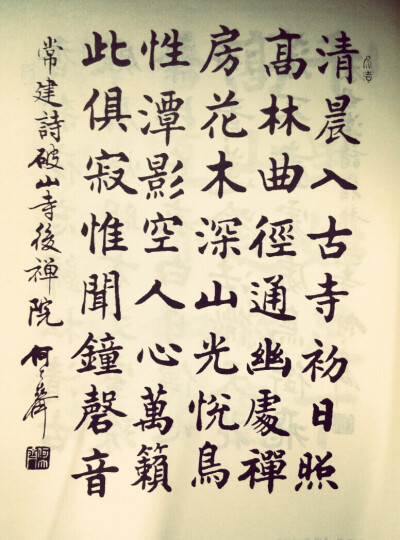 清晨入古寺初日照
髙林曲徑通幽處禪
房花木深山光悅鳥
性潭影空人心萬籟
此俱寂惟聞鐘磬音
常建詩破山寺後禪院 何